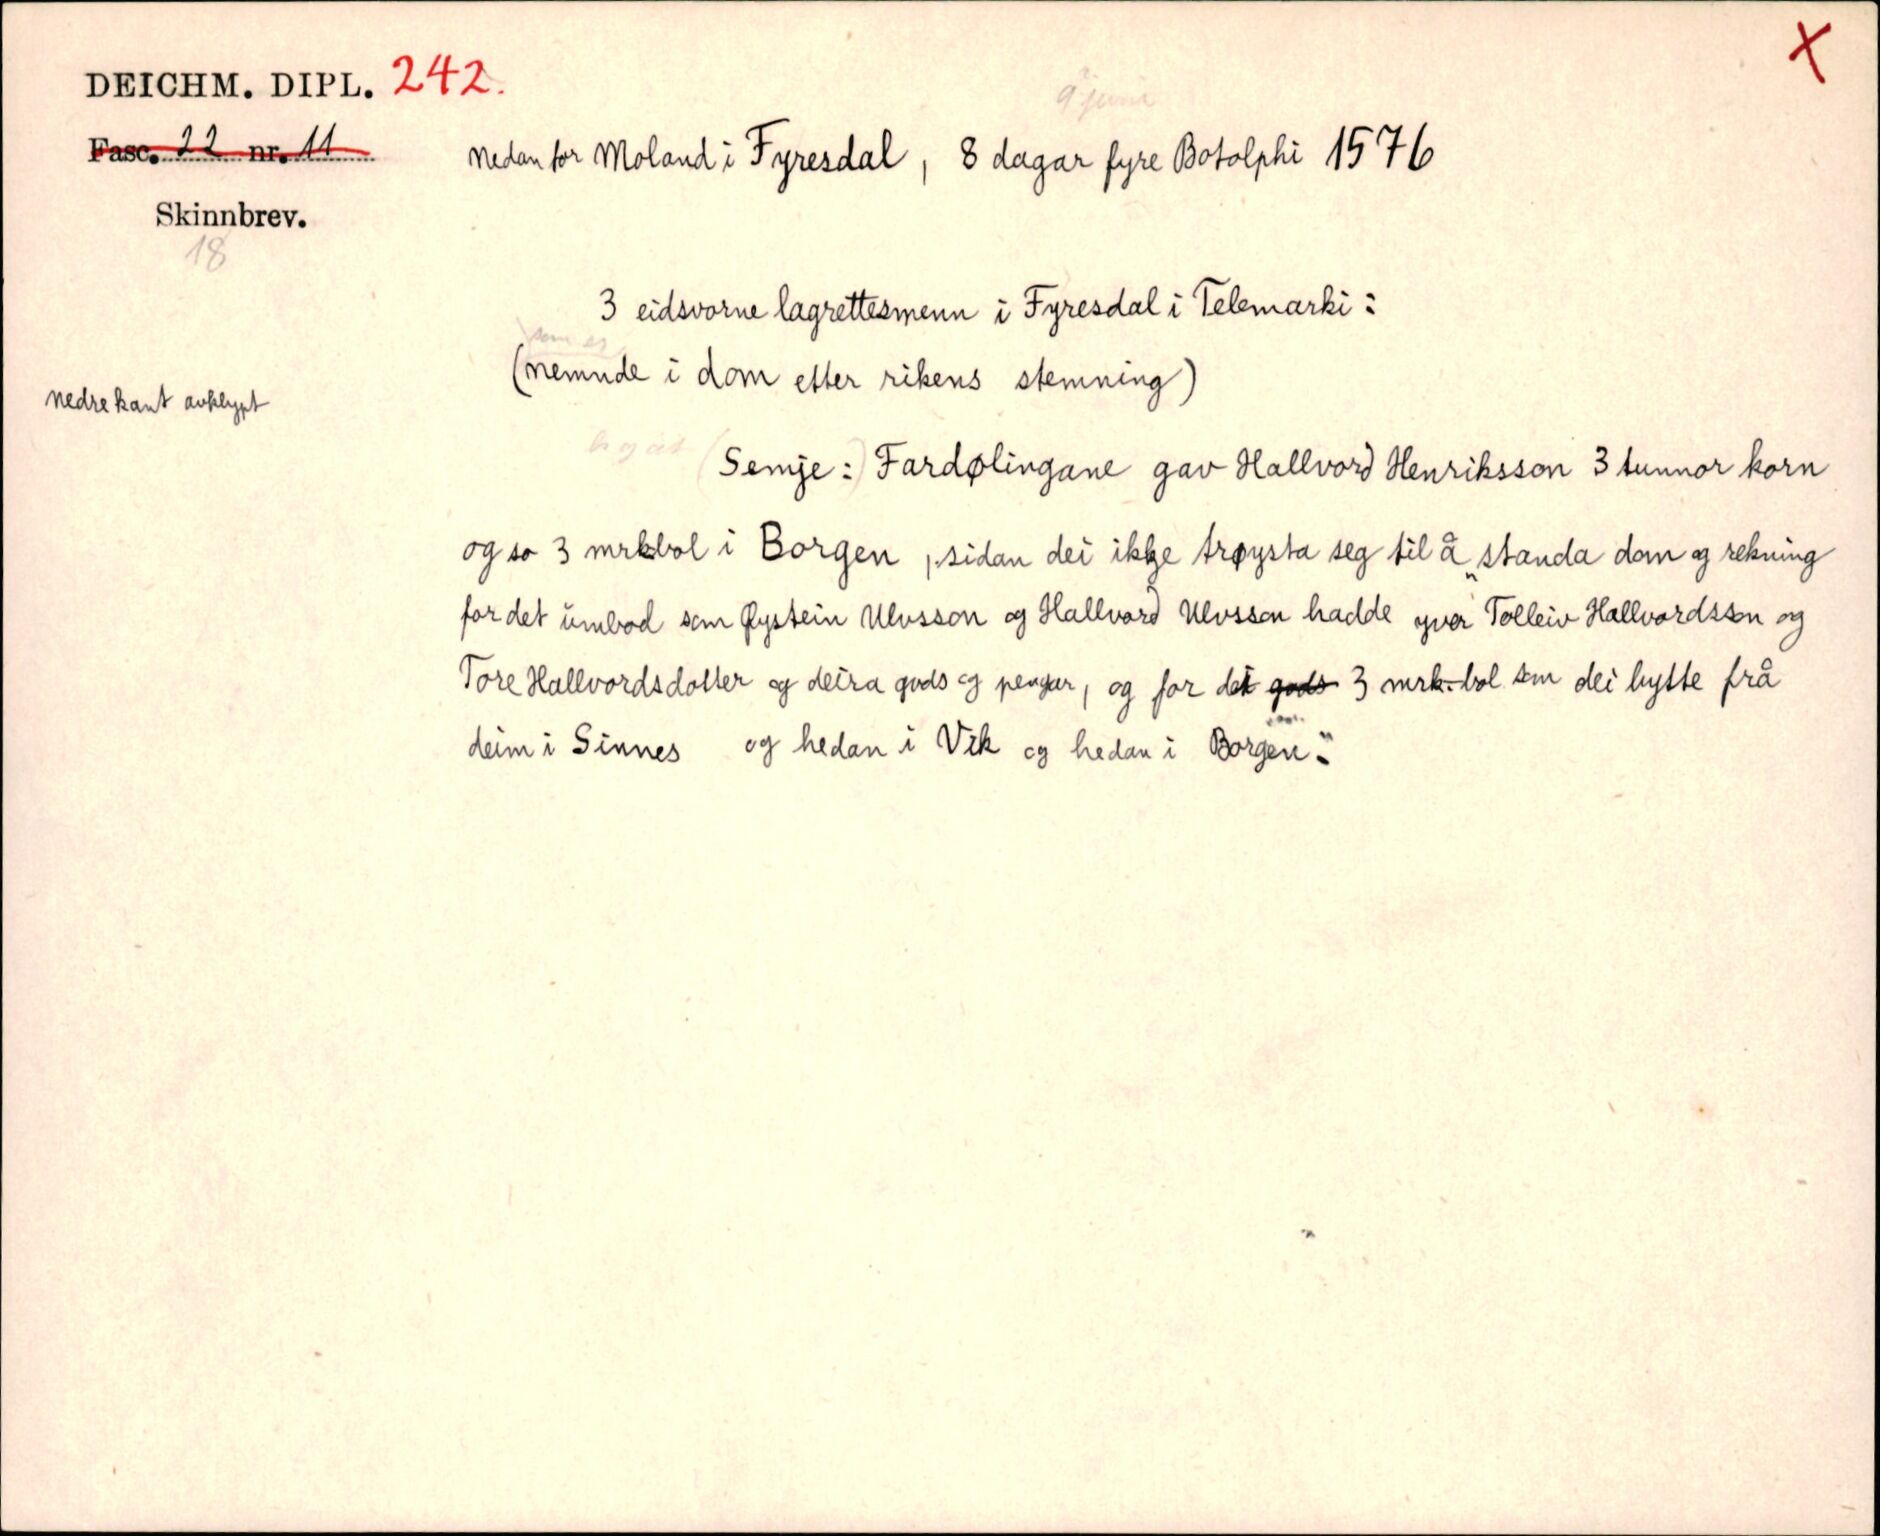 DEICHM. DIPL. 242.
X
9 juni
Fasc. 22 nr. 11
nedanfor Moland i Fyresdal, 8 dagar fyre Botolphi 1576
Skinnbrev.
18
3 eidsvorne lagrettesmenn i Fyresdal i Telemarki:
som er
(nemnde i dom etter rikens stemning)
nedre kant avklypt
(Semje:) Fardølingane gav Hallvord Henriksson 3 tunnor korn
og so 3 mrkbol i Borgen, sidan dei ikkje trøysta seg til å standa dom og rekning
for det umbod som Øystein Ulvsson og Hallvord Ulvsson hadde yver Tolleiv Hallvordsson og
Tore Hallvordsdotter og deira gods og pengar, og for det gods 3 mrk.bol som dei bytte frå
deim i Sinnes og hedan i Vik og hedan i Borgen."